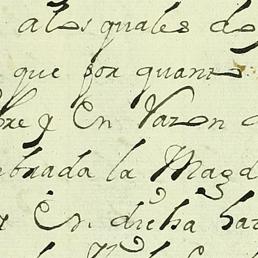 alos quales de
que por quant
bre q En Razon
brada la Magd
En dicha haz